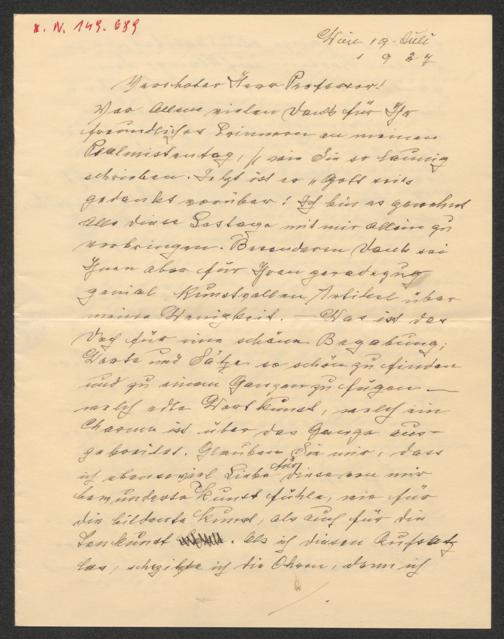 H. N. 149.689
Wien 19. Juli
1927
Verehrter Herr Professor!
Vor Allem vielen Dank für Ihr
freundliches Erinnern an meinen
Psalmistentag, // wie Sie so launig
schrieben. Jetzt ist er „Gott sei's
gedankt vorüber! Ich bin es gewohnt
alle diese Festage mit mir allein zu
verbringen. Besonderen Dank sei
Ihnen aber für Ihren geradezu
genial kunstvollen Artikel über
meine Wenigkeit. — Was ist das
doch für eine schöne Begabung;
Worte und Sätze so schön zu finden
und zu einem Ganzen zu fügen —
welch edle Wortkunst, welch ein
Charme ist über das Ganze aus-
gebreitet. Glauben Sie mir, dass
ich ebensoviel Liebe für diese von mir
bewunderte Kunst fühle, wie für
die bildende Kunst, als auch für die
Tonkunst. Als ich diesen Aufsatz
las, spitzte ich die Ohren, denn ich